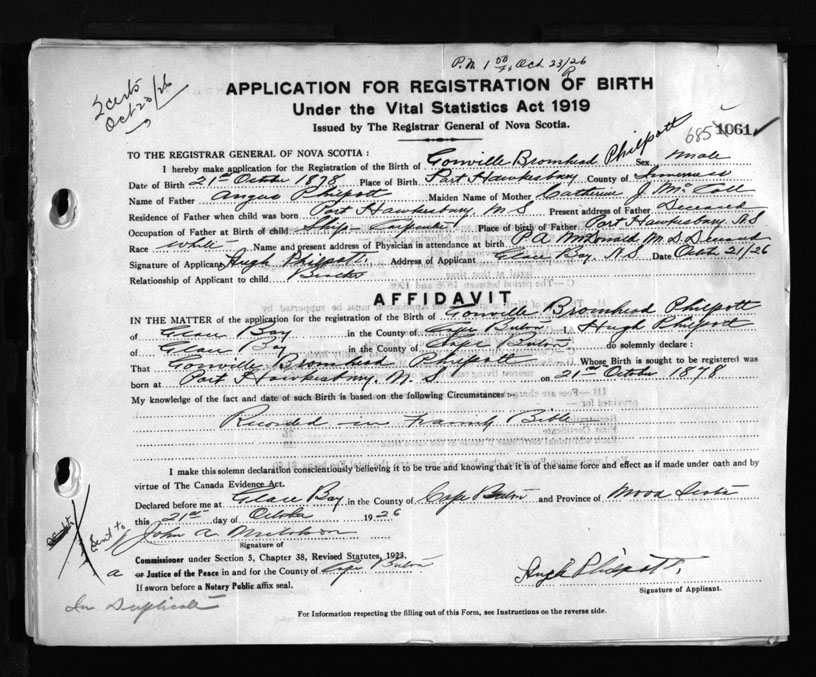 P.M. 1 00 Oct 23/26
2 certs
Oct 23/26
APPLICATION FOR REGISTRATION OF BIRTH
Under the Vital Statistics Act 1919
Issued by The Registrar General of Nova Scotia.
685 1061
TO THE REGISTRAR GENERAL OF NOVA SCOTIA:
I hereby make application for the Registration of the Birth of Gonville Bromhead Philpott Sex male
Date of Birth 21st October 1878 Place of Birth Port Hawkesbury County of Inverness
Name of Father Angus Philpott Maiden Name of Mother Catherine J. Mc
Residence of Father when child was born Port Hawkesbury N S Present address of Father Deceased
Occupation of Father at Birth of child Ship Carpenter Place of birth of Father Port Hawkesbury N S
Race White Name and present address of Physician in attendance at birth P A McDonald M D Deceased
Signature of Applicant Hugh Philpott. Address of Applicant Glace Bay N S Date Oct 21/26
Relationship of Applicant to child Brother
AFFIDAVIT
IN THE MATTER of the application for the registration of the Birth of Gonville Bromhead Philpott
of Glace Bay in the County of Cape Breton I Hugh Philpott
of Glace Bay in the County of Cape Breton do solemnly declare:
That Gonville Bromhead Philpott Whose Birth is sought to be registered was
born at Port Hawkesbury, N. S. on 21st October 1878
My knowledge of the fact and date of such Birth is based on the following Circumstances:-
Recorded in Family Bible
I make this solemn declaration conscientiously believing it to be true and knowing that it is of the same force and effect as if made under oath and by
virtue of The Canada Evidence Act.
Declared before me at Glace Bay in the County of Cape Breton and Province of Nova Scotia
this 21st day of October 1926
Sent to
John A
Signature of
Commissioner under Section 5, Chapter 38, Revised Statutes, 1923,
a or Justice of the Peace in and for the County of Cape Breton
If sworn before a Notary Public affix seal.
Hugh Philpott.
Signature of Applicant.
In Duplicate
For Information respecting the filling out of this Form, see Instructions on the reverse side.